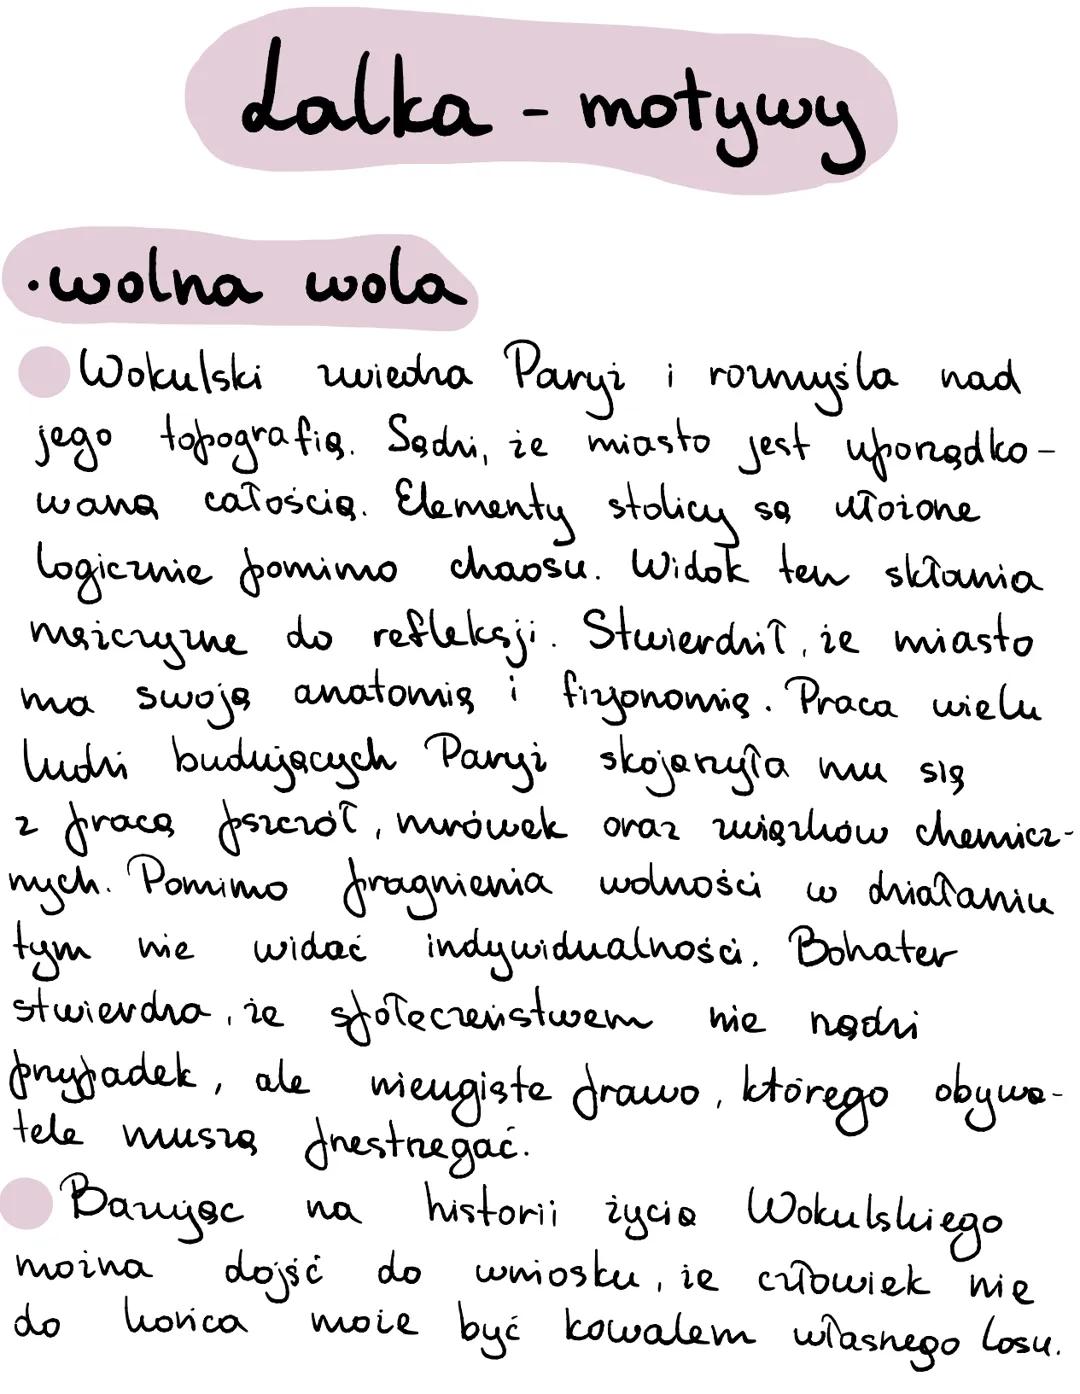 Lalka - motywy
• wolna wola
Wokulski zwiedza Paryż i rozmyśla nad
jego topografią. Sądzi, że miasto jest uporządko-
waną całością. Elementy stolicy są ułożone
logicznie pomimo chaosu. Widok ten skłania
mężczyznę do refleksji. Stwierdził, że miasto
ma swoją anatomię i fizjonomię. Praca wielu
ludzi budujących Paryż skojarzyła mu się
z pracą pszczół, mrówek oraz związków chemicz-
nych. Pomimo pragnienia wolności w działaniu
tym nie widać indywidualności. Bohater
stwierdza, że społeczeństwem nie rządzi
przypadek, ale nieugięte prawo, którego obywa-
tele muszą przestrzegać.
Bazując na historii życia Wokulskiego
można dojść do wniosku, że człowiek nie
do końca może być kowalem własnego losu.